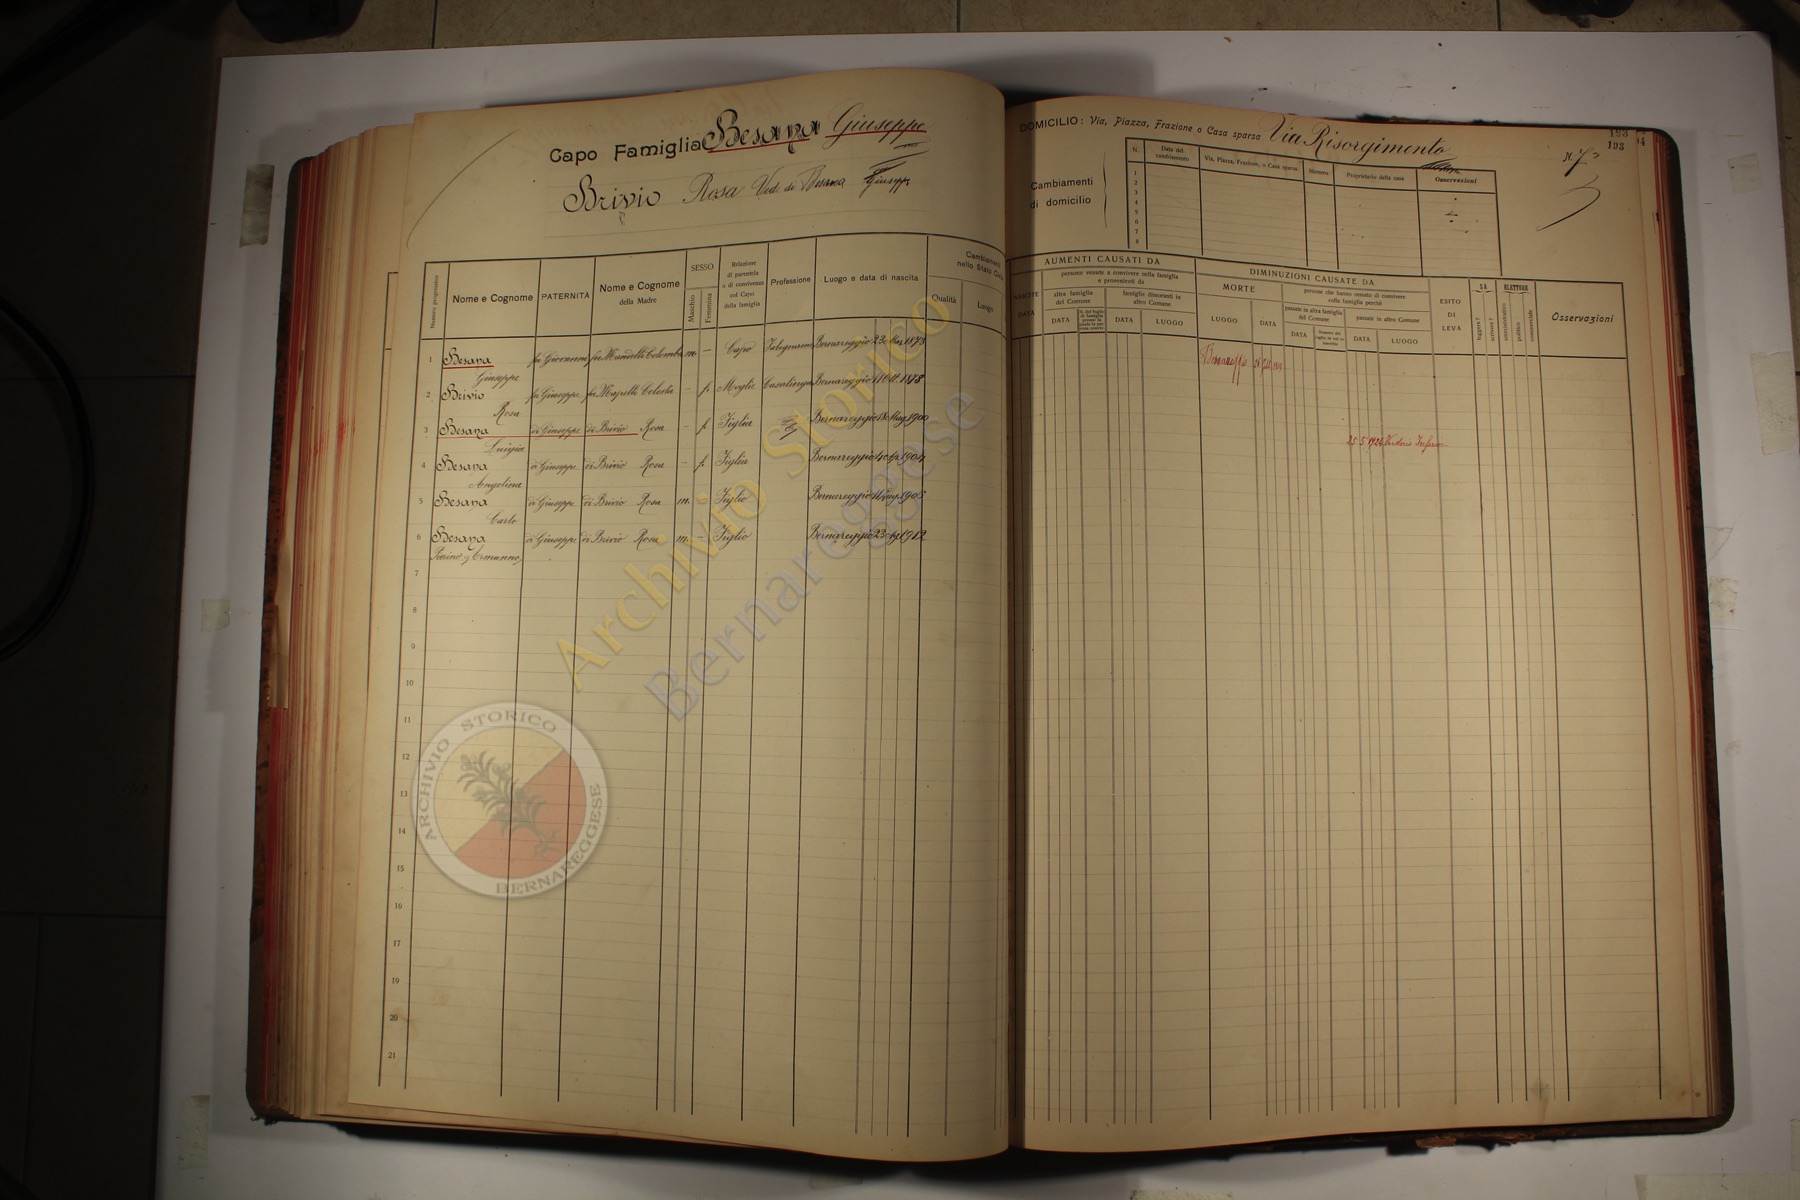 Capo Famiglia Besana Giuseppe
Brivio Rosa Ved. di Besana Giuseppe
Numero progressivo
Nome e Cognome
PATERNITÀ
Nome e Cognome della Madre
SESSO
Maschio
Femmina
Relazione di parentela o di convivenza col Capo della famiglia
Professione
Luogo e data di nascita
Cambiamenti nello Stato Civile
Qualità
Luogo
1 Besana Giuseppe fu Giovanni fu Mandelli Colomba m. – Capo Falegname Bernareggio 23 1873
2 Brivio Rosa fu Giuseppe fu Mapelli Celesta – f. Moglie Casalinga Bernareggio 11 Ott. 1878
3 Besana Luigia di Giuseppe di Brivio Rosa – f. Figlia Bernareggio 18 1900
4 Besana Angelina di Giuseppe di Brivio Rosa – f. Figlia Bernareggio 1904
5 Besana Carlo di Giuseppe di Brivio Rosa m. – Figlio Bernareggio 1905
6 Besana Pierino Ermanno di Giuseppe di Brivio Rosa m. – Figlio Bernareggio 23 1912
7
8
9
10
11
12
13
14
15
16
17
19
20
21
DOMICILIO: Via, Piazza, Frazione o Casa sparsa Via Risorgimento
N. 7
193
193
Cambiamenti di domicilio
N.
Data del cambiamento
Via, Piazza, Frazione, o Casa sparsa
Numero
Proprietario della casa
Osservazioni
1
2
3
4
5
6
7
8
AUMENTI CAUSATI DA
NASCITE
DATA
persone venute a convivere nella famiglia e provenienti da
altra famiglia del Comune
DATA
famiglie dimoranti in altro Comune
DATA
LUOGO
DIMINUZIONI CAUSATE DA
MORTE
LUOGO
DATA
persone che hanno cessato di convivere colla famiglia perchè
passate in altra famiglia del Comune
DATA
passate in altro Comune
DATA
LUOGO
ESITO DI LEVA
SA
leggere?
scrivere?
ELETTORE
amministrativo
politico
commerciale
Osservazioni
Bernareggio
25 5 1924 Verderio Inferiore
Archivio Storico
Bernareggese
ARCHIVIO STORICO
BERNAREGGESE